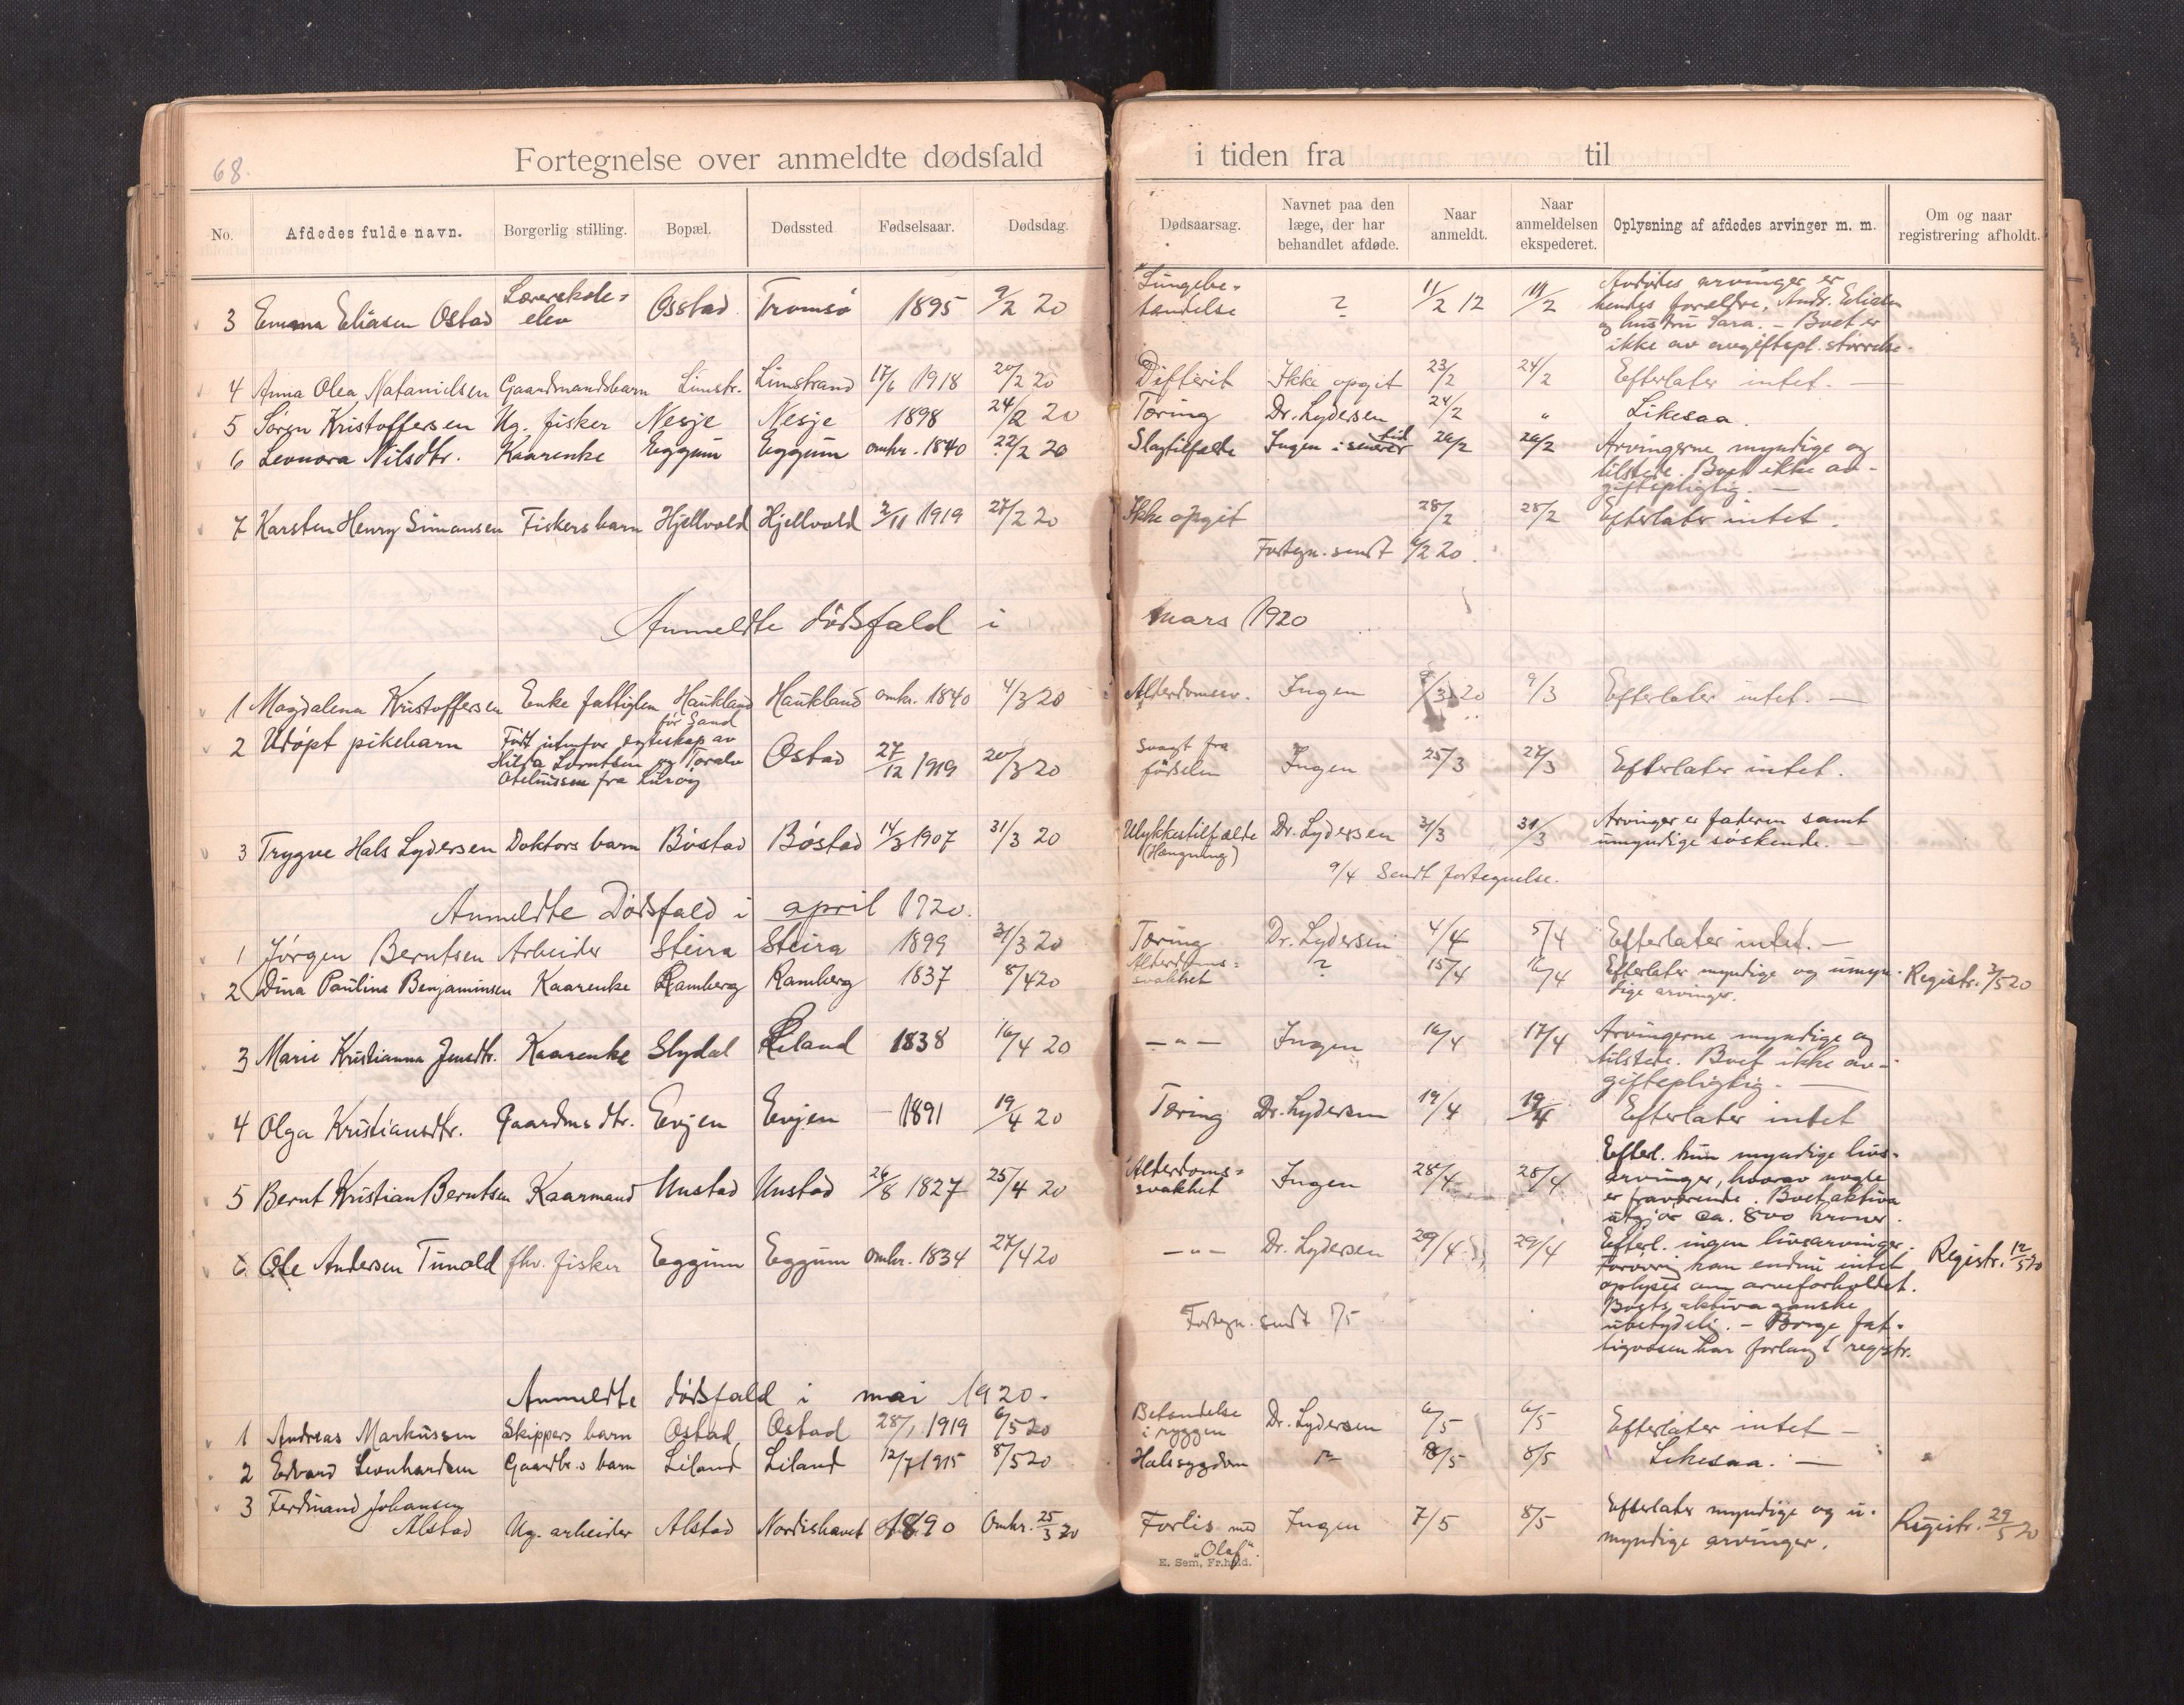 68.
Fortegnelse over anmeldte dødsfald i tiden fra til
No. Afdødes fulde navn. Borgerlig stilling. Bopæl. Dødssted Fødselsaar. Dødsdag. Dødsaarsag. Navnet paa den læge, der har behandlet afdøde. Naar anmeldt. Naar anmeldelsen ekspederet. Oplysning af afdødes arvinger m. m. Om og naar registrering afholdt.
3 Emma Eliasen Ostad Lærerskole= elev Ostad Tromsø 1895 9/2 20 Lungebe= tændelse ? 11/2 12 11/2 Avdødes arvinger er
hendes forældre, Andr. Eliasen
og hustru Sara. – Boet er
ikke av avgiftspl. størrelse.
4 Anna Olea Natanielsen Gaardmandsbarn Limstr. Limstrand 17/6 1918 20/2 20 Difterit Ikke opgit 23/2 24/2 Efterlater intet. —
5 Søren Kristoffersen Ug. fisker Nesje Nesje 1898 24/2 20 Tæring Dr. Lydersen 24/2 " Likesaa
6 Leonora Nilsdtr. Kaarenke Eggum Eggum omkr. 1840 22/2 20 Slagtilfælde Ingen i senere tid 26/2 26/2 Arvingerne myndige og
tilstede. Boet ikke av-
giftspligtig. —
7 Karsten Henry Simonsen Fiskersbarn Hjellvold Hjellvold 2/11 1919 27/2 20 Ikke opgit 28/2 28/2 Efterlater intet.
Fortegn. sendt 20.
Anmeldte dødsfald i mars 1920
1 Magdalena Kristoffersen Enke fattiglem Haukland Haukland omkr. 1840 4/3 20 Alderdomssv. Ingen 9/3 20 9/3 Efterlater intet. —
før Sand
2 Udøpt pikebarn Født utenfor egteskap av
Hilda Lorntsen og Toralv
Oteliussen fra Lurøy Ostad 27/12 1919 20/3 20 Svagt fra fødselen Ingen 25/3 27/3 Efterlater intet.
3 Trygve Hals Lydersen Doktors barn Bøstad Bøstad 14/3 1907 31/3 20 Ulykkestilfælde (Hængning) Dr. Lydersen 31/3 31/3 Arvinger er faderen samt
umyndige søskende. —
9/4 Sendt fortegnelse.
Anmeldte Dødsfald i april 1920.
1 Jørgen Berntsen Arbeider Steira Steira 1899 31/3 20 Tæring Dr. Lydersen 4/4 5/4 Efterlater intet. —
2 Dina Pauline Benjaminsen Kaarenke Ramberg Ramberg 1837 8/4 20 Alderdoms= svakhet ? 15/4 16/4 Efterlater myndige og umyn-
dige arvinger. Registr. 3/5 20
3 Marie Kristianna Jensdtr. Kaarenke Slydal Liland 1838 16/4 20 — " — Ingen 16/4 17/4 Arvingerne myndige og
tilstede. Boet ikke av-
giftspligtig. —
4 Olga Kristiansdtr. Gaardmsdtr. Evjen Evjen — 1891 19/4 20 Tæring Dr. Lydersen 19/4 19/4 Efterlater intet
5 Bernt Kristian Berntsen Kaarmand Unstad Unstad 26/8 1827 25/4 20 Alderdoms= svakhet Ingen 28/4 28/4 Efterl. kun myndige livs-
arvinger, hvorav nogle
er fraværende. Boets aktiva
utgjør ca. 800 kroner.
6. Ole Andersen Tunold fhv. fisker Eggum Eggum omkr. 1834 27/4 20 — " — Dr. Lydersen 29/4 29/4 Efterl. ingen livsarvinger.
Forøvrig kan endnu intet
oplyses om arveforholdet.
Boets aktiva ganske
ubetydelig. – Borge fat-
tigvæsen har forlangt registr. Registr. 12/5 20
Fortegn. sendt 1/5
Anmeldte dødsfald i mai 1920.
1 Andreas Markussen Skippers barn Ostad Ostad 28/1 1919 6/5 20 Betændelse i ryggen Dr. Lydersen 6/5 6/5 Efterlater intet —
2 Edvard Leonhardsen Gaardbr.s barn Liland Liland 12/7 1915 8/5 20 Halssygdom " 8/5 8/5 Likesaa. —
3 Ferdinand Johansen
Alstad Ug. arbeider Alstad Nordishavet 1890 Omkr. 25/3 20 Forlis med "Olaf". Ingen 7/5 8/5 Efterlater myndige og u-
myndige arvinger. Registr. 29/5 20
E. Sem, Fr.hald.